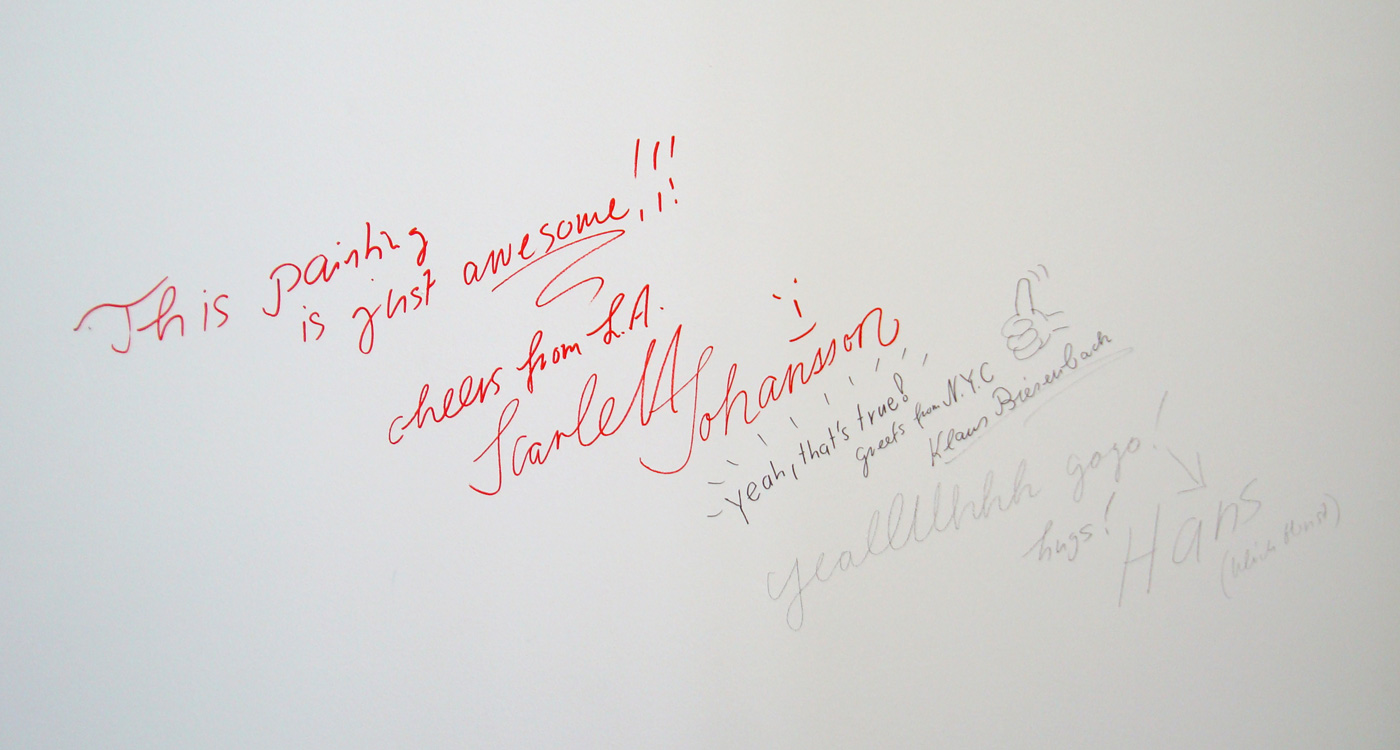 This painting
is just awesome,!!!
cheers from L.A.
Scarlett Johansson
yeah, that's true!
greets from N.Y.C
Klaus Biesenbach
yeallllhhhh gogo!
hugs! Hans
(Ulrich Obrist)